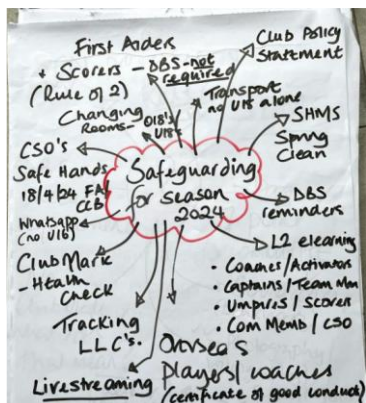 First Aiders
+ Scorers - DBS - not required
(Rule of 2)
Club Policy
Statment
Transport
no U18 alone
Changing
Rooms - O18's/
U18's
SHMS
Spring
Clean
CSO's
Safe Hands
18/4/24 FA
CCB
Safeguarding
for season
2024
DBS
reminders
Whatsapp
(no U16)
L2 elearning
• Coaches/Activators
• Captains/Team Man
• Umpires/Scorers
• Com Memb/CSO
ClubMark
- Health
Check
Tracking
LLC's.
Overseas
Players/coaches
(certificate of good conduct)
Livestreaming